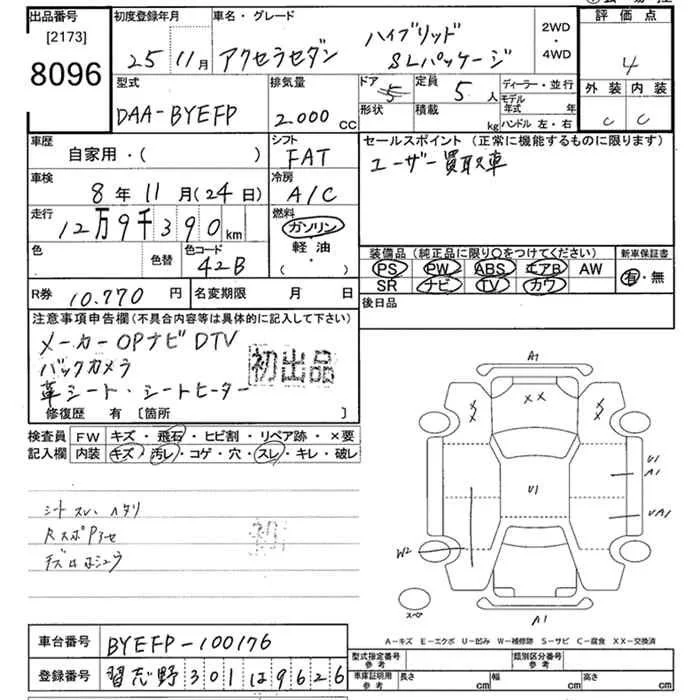 出品番号
[2173]
8096
初度登録年月
25 11月
車名・グレード
アクセラセダン
ハイブリッド
SLパッケージ
2WD
・
4WD
評価点
4
外装 内装
C C
型式
DAA-BYEFP
排気量
2.000 CC
ドア
5
定員
5 人
形状
積載
kg
ディーラー・並行
モデル年式 年
ハンドル 左・右
車歴
自家用・( )
シフト
FAT
セールスポイント (正常に機能するものに限ります)
ユーザー買取車
車検
8年11月(24日)
冷房
A/C
走行
12万9千390km
燃料
ガソリン
・
軽油
( ・ )
色
色替
色コード
42B
装備品 (純正品に限り○をつけてください)
PS PW ABS エアB AW
SR ナビ TV カワ
新車保証書
有・無
R券 10.770円
名変期限 月 日
後日品
注意事項申告欄(不具合内容等は具体的に記入して下さい)
メーカーOPナビ DTV
バックカメラ
革シート・シートヒーター
初出品
修復歴 有 [箇所 ]
検査員記入欄
FW キズ・飛石・ヒビ割・リペア跡・×要
内装 キズ・汚レ・コゲ・穴・スレ・キレ・破レ
シートスレ ヘタリ
初
A1
XX
U1
A1
U1
UA1
W2
スペア
A1
A-キズ E-エクボ U-凹み W-補修跡 S-サビ C-腐食 XX-交換済
車台番号 BYEFP-100176
登録番号 習志野301は9626
型式指定番号
参考
類別区分番号
参考
車庫証明用
参考
長さ cm 幅 cm 高さ cm